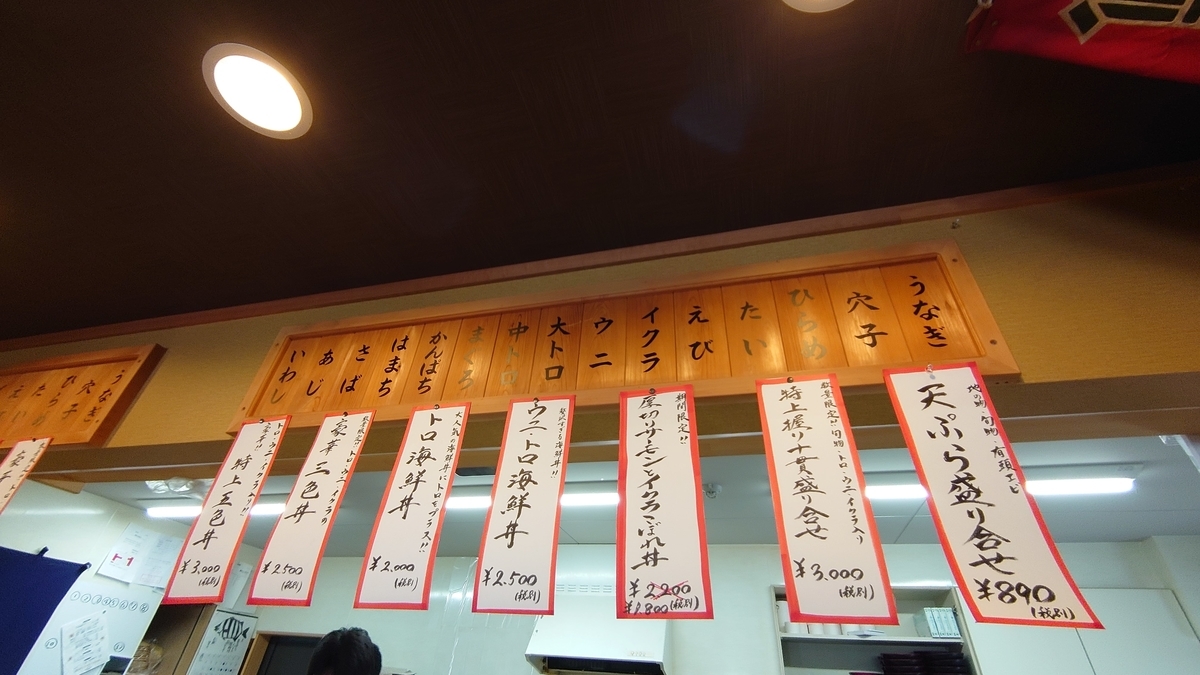 うなぎ
穴子
ひらめ
たい
えび
イクラ
ウニ
大トロ
中トロ
まぐろ
かんぱち
はまち
さば
あじ
いわし
うなぎ
穴子
ひらめ
たい
えび
地の物・旬物・有頭エビ
天ぷら盛り合せ
¥890
(税別)
数量限定!!旬物・トロ・ウニ・イクラ入り
特上握り十貫盛り合せ
¥3,000
(税別)
期間限定!!
厚切りサーモンとイクラこぼれ丼
¥2,200
¥1,800(税別)
贅沢すぎる海鮮丼!!
ウニトロ海鮮丼
¥2,500
(税別)
大人気の海鮮丼にトロをプラス!!
トロ海鮮丼
¥2,000
(税別)
数量限定!!トロ・ウニ・イクラの
豪華三色丼
¥2,500
(税別)
トロ・ウニ・イクラ入り!!
豪華!!特上五色丼
¥3,000
(税別)